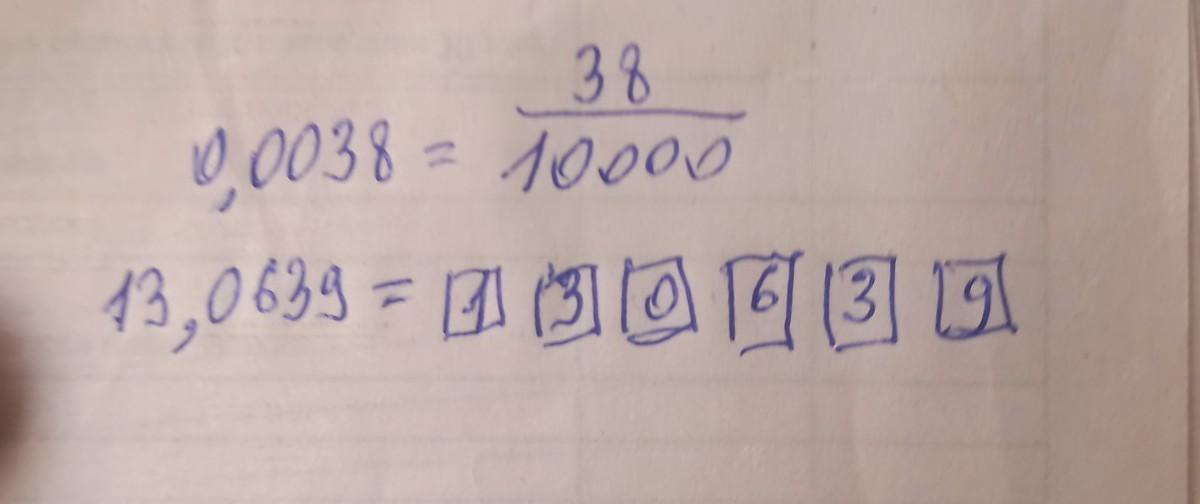 0,0038 = 38/10000
13,0639 = 1 3 0 6 3 9